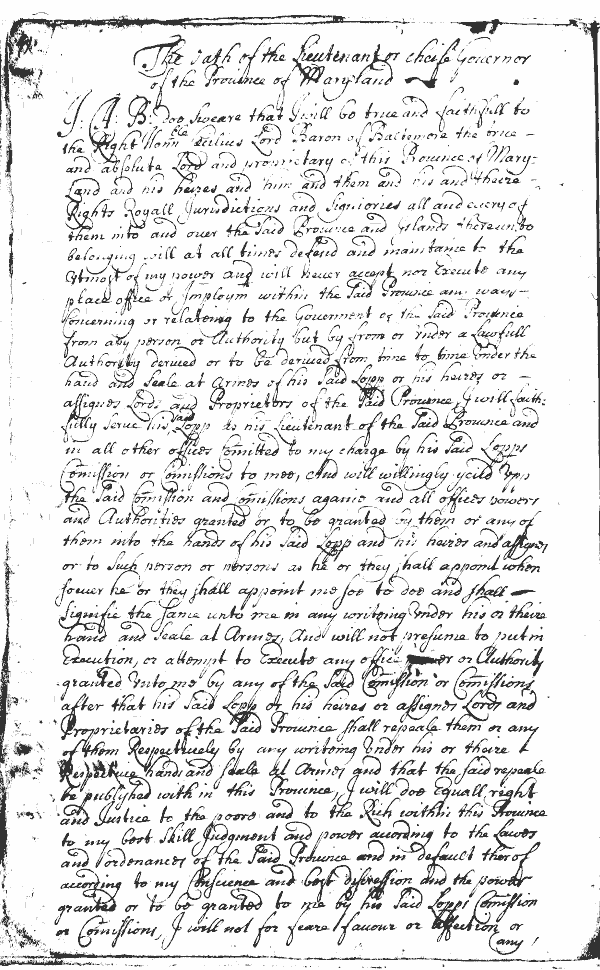 The oath of the Lieutenant or cheife Governor
of the Province of Maryland
I. A. B. doe sweare that I will be true and faithfull to
the Right Honn ble Cecilius Lord Baron of Baltemore the true
and absolute Lord and proprietary of this Province of Mary-
Land and his heires and him and them and his and theire
Rights Royall Jurisdictions and Signiories all and every of
them into and over the said Province and Islands thereunto
belonging will at all times defend and maintaine to the
Utmost of my power and will never accept nor Execute any
place office or Imploymt within the said Province any ways
Concerning or relateing to the Goverment of the said Province
from any person or Authority but by from or under a Lawfull
Authority derived or to be derived from time to time under the
hand and Seale at Armes of his said Lopp or his heires or
assignes Lords and Proprietors of the said Province, I will faith-
fully serve his said Lopp as his Lieutenant of the said Province and
in all other offices Comitted to my charge by his said Lopps
Comission or Comissions to mee, And will willingly yeild upp
the said Comission and Comissions againe and all offices powers
and Authorities granted or to be granted by them or any of
them into the hands of his said Lopp and his heires and assignes
or to such person or persons as he or they shall appoint when
sower he or they shall appoint me soe to doe and shall
signifie the same unto me in any writeing under his or theire
hand and Seale at Armes, And will not presume to put in
Execution, or attempt to Execute any office power or Authority
granted unto me by any of the said Comission or Comissions
after that his said Lopp or his heires or assignes Lords and
Proprietaries of the said Province shall repeale them or any
of them Respectively by any writeing under his or theire
Respective hand and seale at Armes and that the said repeale
be published within this Province, I will doe Equall right
and Justice to the poore and to the Rich within this Province
to my best skill Judgment and power according to the Lawes
and ordenances of the said Province and in default therof
according to my Conscience and best discression and the power
granted or to be granted to me by his said Lopps Comission
or Comissions, I will not for feare favour or affection or
any